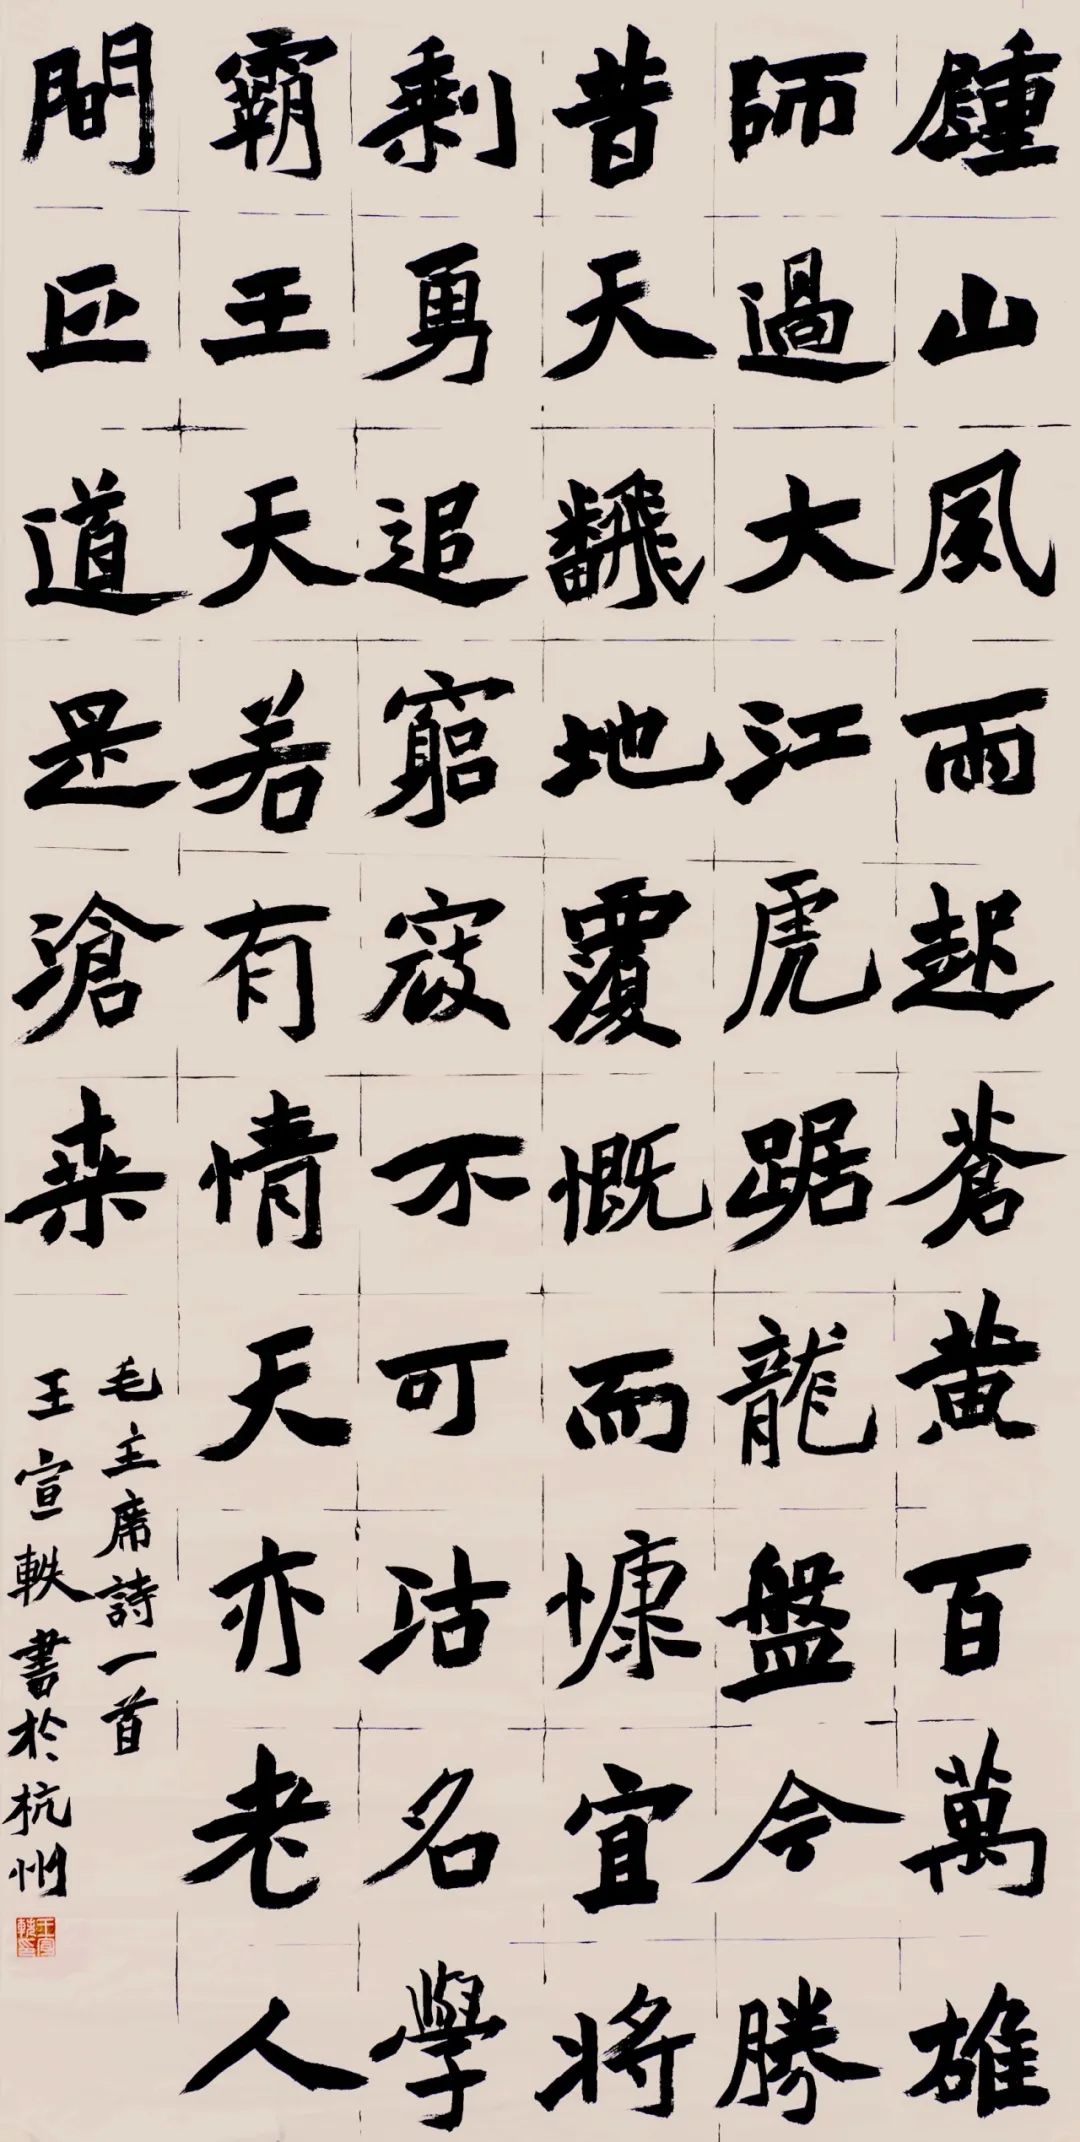 鍾山風雨起蒼黃百萬雄
師過大江虎踞龍盤今勝
昔天飜地覆慨而慷宜將
剩勇追窮寇不可沽名學
霸王天若有情天亦老人
間正道是滄桒
毛主席詩一首
王宣軼書於杭州